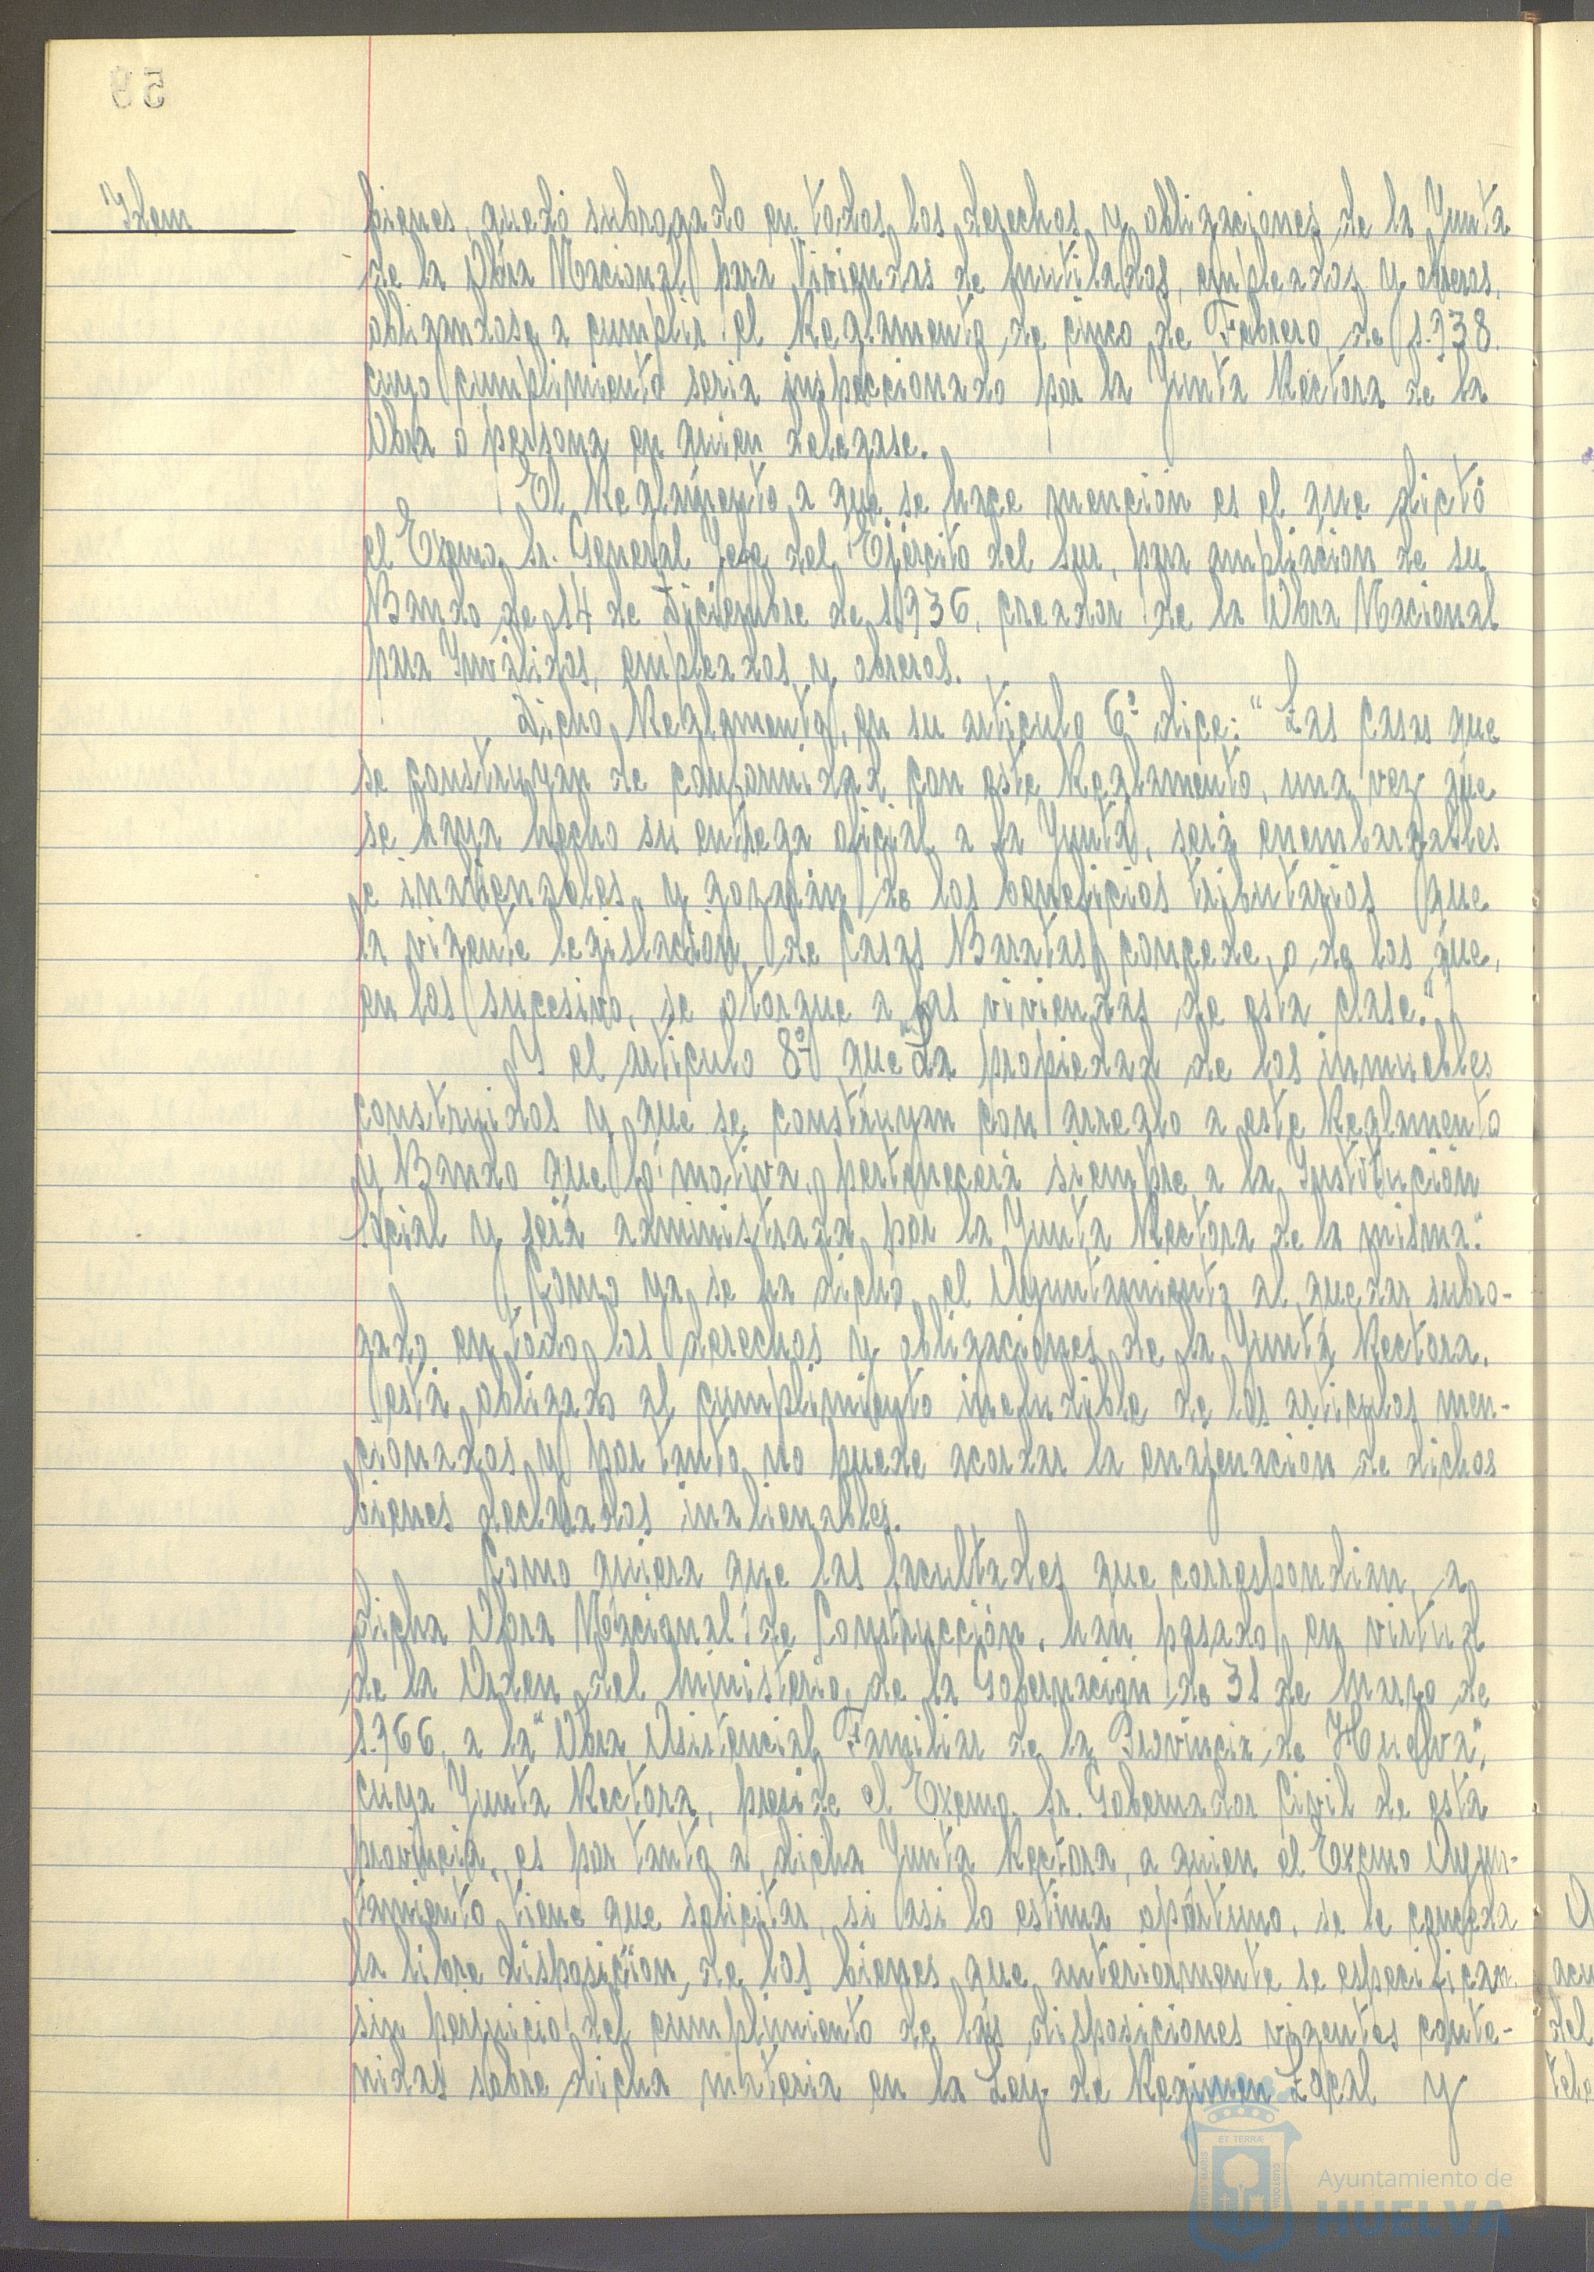 Idem
bienes, quedó subrogado en todos los derechos y obligaciones de la Junta
de la Obra Nacional para Viviendas de Mutilados, empleados y obreros,
obligandose a cumplir el Reglamento de cinco de Febrero de 1.938.
cuyo cumplimiento seria inspeccionado por la Junta Rectora de la
Obra o persona en quien delegase.
El Reglamento a que se hace mención es el que dictó
el Excmo. Sr. General Jefe del Ejército del Sur, para ampliacion de su
Bando de 14 de Diciembre de 1.936, creador de la Obra Nacional
para Inválidos, empleados y obreros.
Dicho Reglamento, en su articulo 6º dice: "Las casas que
se construyan de conformidad con este Reglamento, una vez que
se haya hecho su entrega oficial a la Junta, será enembargables
e inalienables y gozarán de los beneficios tributarios que
la vigente legislación de Casas Baratas concede, o de los que,
en los sucesivo, se otorgue a las viviendas de esta clase."
Y el articulo 8º que "La propiedad de los inmuebles
construidos y que se construyan con arreglo a este Reglamento
y Bando que lo motiva, pertenecerá siempre a la Institución
Social y será administrada por la Junta Rectora de la misma."
Como ya se ha dicho el Ayuntamiento al quedar subro-
gado en todo los derechos y obligaciones de la Junta Rectora,
está obligado al cumplimiento ineludible de los articulos men-
cionados y por tanto no puede acordar la enajenación de dichos
bienes declarados inalienables.
Como quiera que las facultades que correspondian a
dicha Obra Nacional de Construcción, han pasado, en virtud
de la Orden del Ministerio de la Gobernación de 31 de Marzo de
1.966, a la "Obra Asistencial Familiar de la Provincia de Huelva",
cuya Junta Rectora, preside el Excmo. Sr. Gobernador Civil de esta
provincia, es por tanto a dicha Junta Rectora, a quien el Excmo Ayun-
tamiento tiene que solicitar, si asi lo estima opórtuno, se le conceda
la libre disposición de los bienes que anteriormente se especifican
sin perjuicio del cumplimiento de las disposiciones vigentes conte-
nidas sobre dicha materia en la Ley de Regimen Local y
Ayuntamiento de
HUELVA